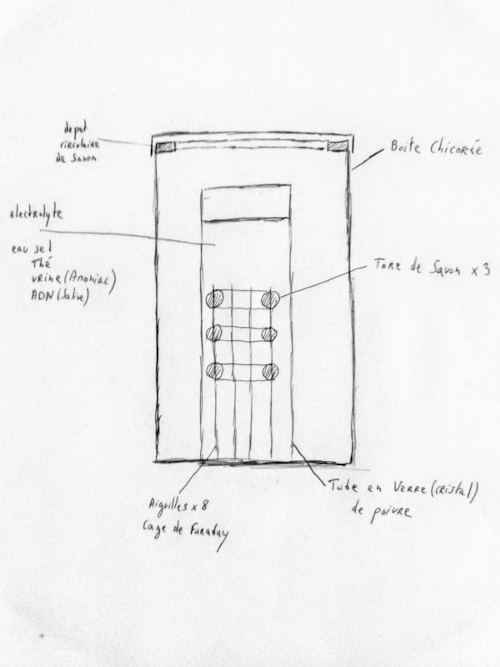 depot
circulaire
de Savon
Boite Chicorée
electrolyte
eau sel
Thé
urine (Amoniac)
ADN (Salive)
Tore de Savon x 3
Aiguilles x 8
Cage de Faraday
Tube en Verre (cristal)
de poivre